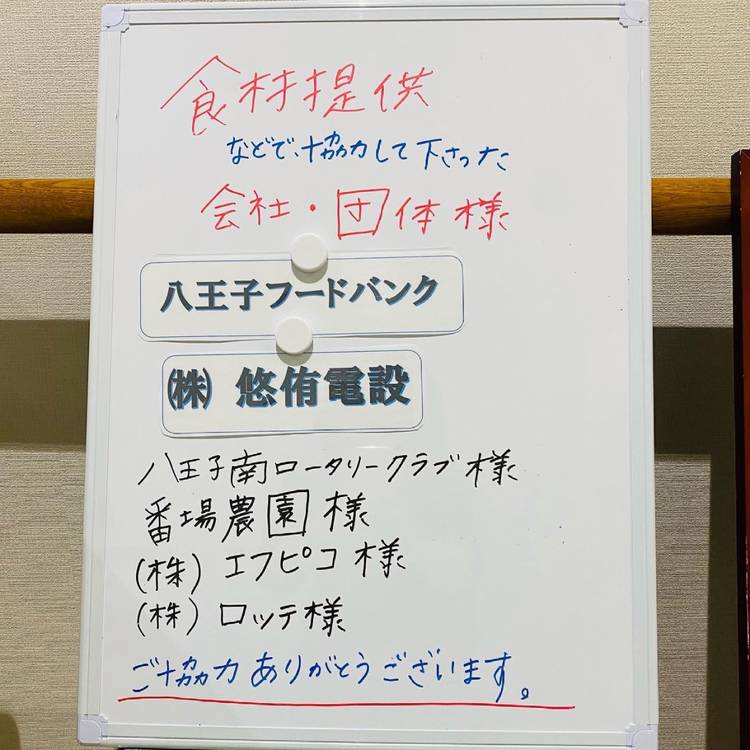 食材提供
などで、協力して下さった
会社・団体様
八王子フードバンク
㈱ 悠侑電設
八王子南ロータリークラブ様
番場農園様
(株)エフピコ様
(株)ロッテ様
ご協力ありがとうございます。